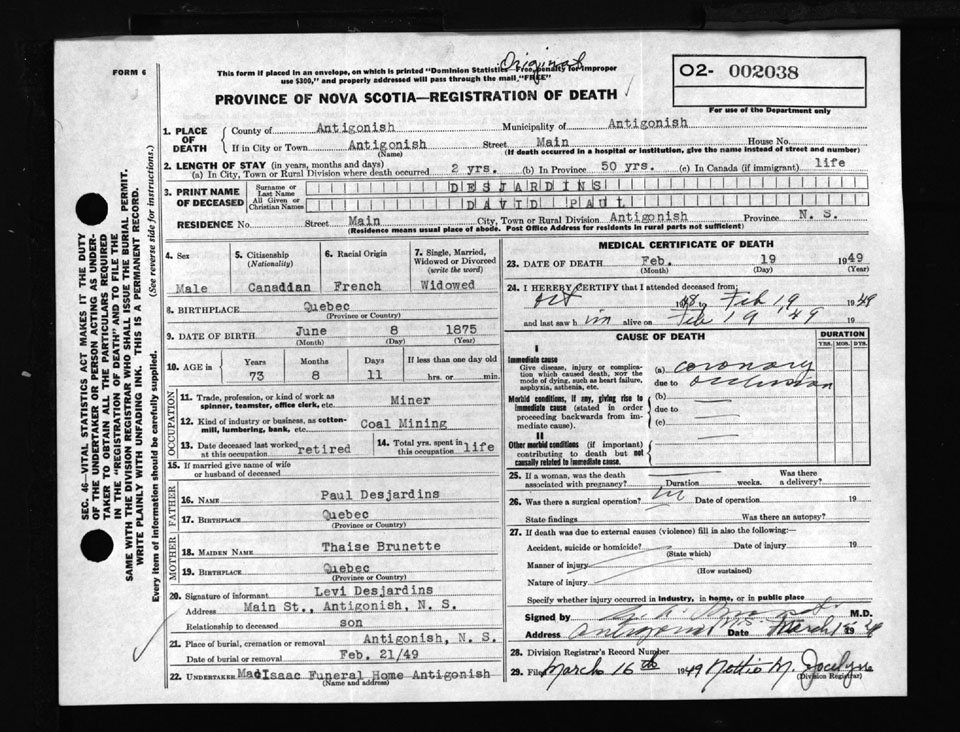 FORM 6
Original
This form if placed in an envelope, on which is printed "Dominion Statistics—Free, penalty for improper
use $300," and properly addressed will pass through the mail "FREE"
O2- 002038
For use of the Department only
PROVINCE OF NOVA SCOTIA—REGISTRATION OF DEATH
1. PLACE OF DEATH
County of Antigonish Municipality of Antigonish
If in City or Town Antigonish Street Main House No.
(Name) (If death occurred in a hospital or institution, give the name instead of street and number)
2. LENGTH OF STAY (in years, months and days)
(a) In City, Town or Rural Division where death occurred 2 yrs. (b) In Province 50 yrs. (c) In Canada (if immigrant) life
3. PRINT NAME OF DECEASED
Surname or Last Name DESJARDINS
All Given or Christian Names DAVID PAUL
RESIDENCE No. Street Main City, Town or Rural Division Antigonish Province N. S.
(Residence means usual place of abode. Post Office Address for residents in rural parts not sufficient)
4. Sex
Male
5. Citizenship (Nationality)
Canaddan
6. Racial Origin
French
7. Single, Married, Widowed or Divorced (write the word)
Widowed
8. BIRTHPLACE Quebec
(Province or Country)
9. DATE OF BIRTH June 8 1875
(Month) (Day) (Year)
10. AGE in Years Months Days If less than one day old
73 8 11 hrs. or min.
OCCUPATION
11. Trade, profession, or kind of work as spinner, teamster, office clerk, etc. Miner
12. Kind of industry or business, as cotton-mill, lumbering, bank, etc. Coal Mining
13. Date deceased last worked at this occupation retired
14. Total yrs. spent in this occupation life
15. If married give name of wife or husband of deceased
FATHER
16. NAME Paul Desjardins
17. BIRTHPLACE Quebec
(Province or Country)
MOTHER
18. MAIDEN NAME Thaise Brunette
19. BIRTHPLACE Quebec
(Province or Country)
20. Signature of informant Levi Desjardins
Address Main St., Antigonish, N. S.
Relationship to deceased son
21. Place of burial, cremation or removal Antigonish, N. S.
Date of burial or removal Feb. 21/49
22. UNDERTAKER MacIsaac Funeral Home Antigonish
(Name and address)
MEDICAL CERTIFICATE OF DEATH
23. DATE OF DEATH Feb. 19 1949
(Month) (Day) (Year)
24. I HEREBY CERTIFY that I attended deceased from:
Oct 1948 to Feb 19 1949
and last saw him alive on Feb 19 '49 19
CAUSE OF DEATH
DURATION
YRS. MOS. DYS.
I
Immediate cause
Give disease, injury or complication which caused death, not the mode of dying, such as heart failure, asphyxia, asthenia, etc.
(a) coronary
due to occlusion
Morbid conditions, if any, giving rise to immediate cause (stated in order proceeding backwards from immediate cause).
(b)
due to
(c)
II
Other morbid conditions (if important) contributing to death but not causally related to immediate cause.
25. If a woman, was the death associated with pregnancy? Duration weeks. Was there a delivery?
26. Was there a surgical operation? Date of operation 19
State findings Was there an autopsy?
27. If death was due to external causes (violence) fill in also the following:—
Accident, suicide or homicide? Date of injury 19
(State which)
Manner of injury
(How sustained)
Nature of injury
Specify whether injury occurred in industry, in home, or in public place
Signed by M.D.
Address Antigonish N.S. Date March 19
28. Division Registrar's Record Number
29. Filed March 16th 1949 Nettie M.
(Division Registrar)
SEC. 46—VITAL STATISTICS ACT MAKES IT THE DUTY
OF THE UNDERTAKER OR PERSON ACTING AS UNDER-
TAKER TO OBTAIN ALL THE PARTICULARS REQUIRED
IN THE "REGISTRATION OF DEATH" AND TO FILE THE
SAME WITH THE DIVISION REGISTRAR WHO SHALL ISSUE THE BURIAL PERMIT.
WRITE PLAINLY WITH UNFADING INK. THIS IS A PERMANENT RECORD.
Every item of information should be carefully supplied. (See reverse side for instructions.)